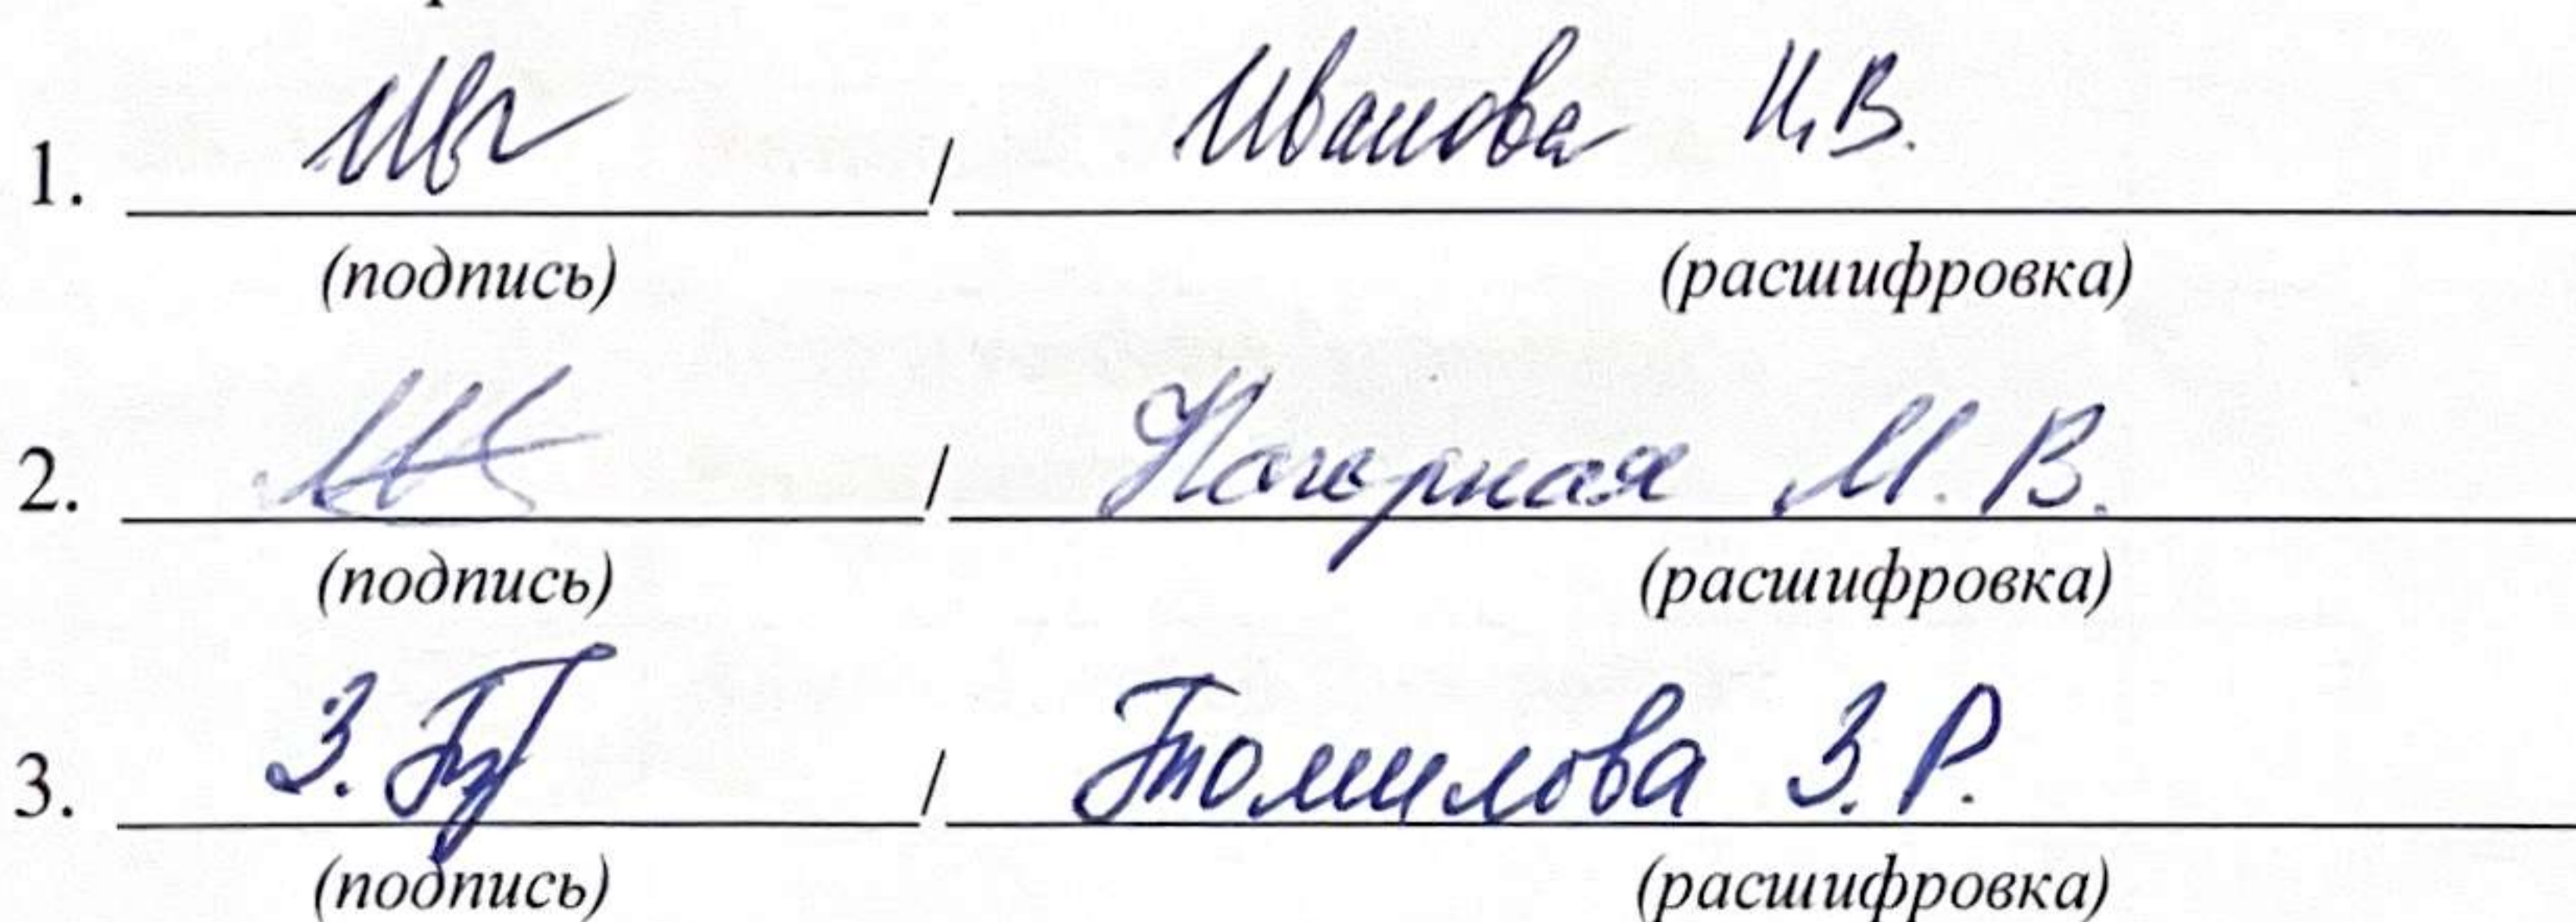 1. / Иванова И.В.
(подпись) (расшифровка)
2. / Нагорная М.В.
(подпись) (расшифровка)
3. / Томилова З.Р.
(подпись) (расшифровка)